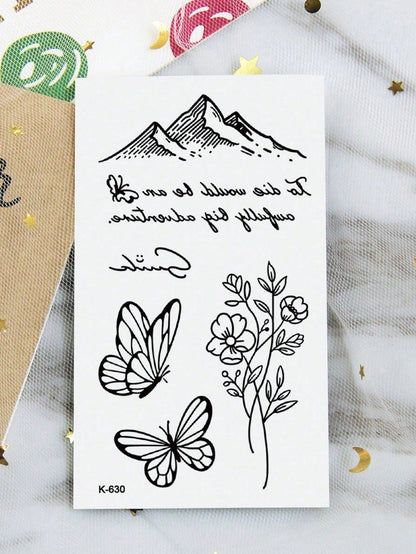 To die would be an
awfully big adventure.
Smile
K-630